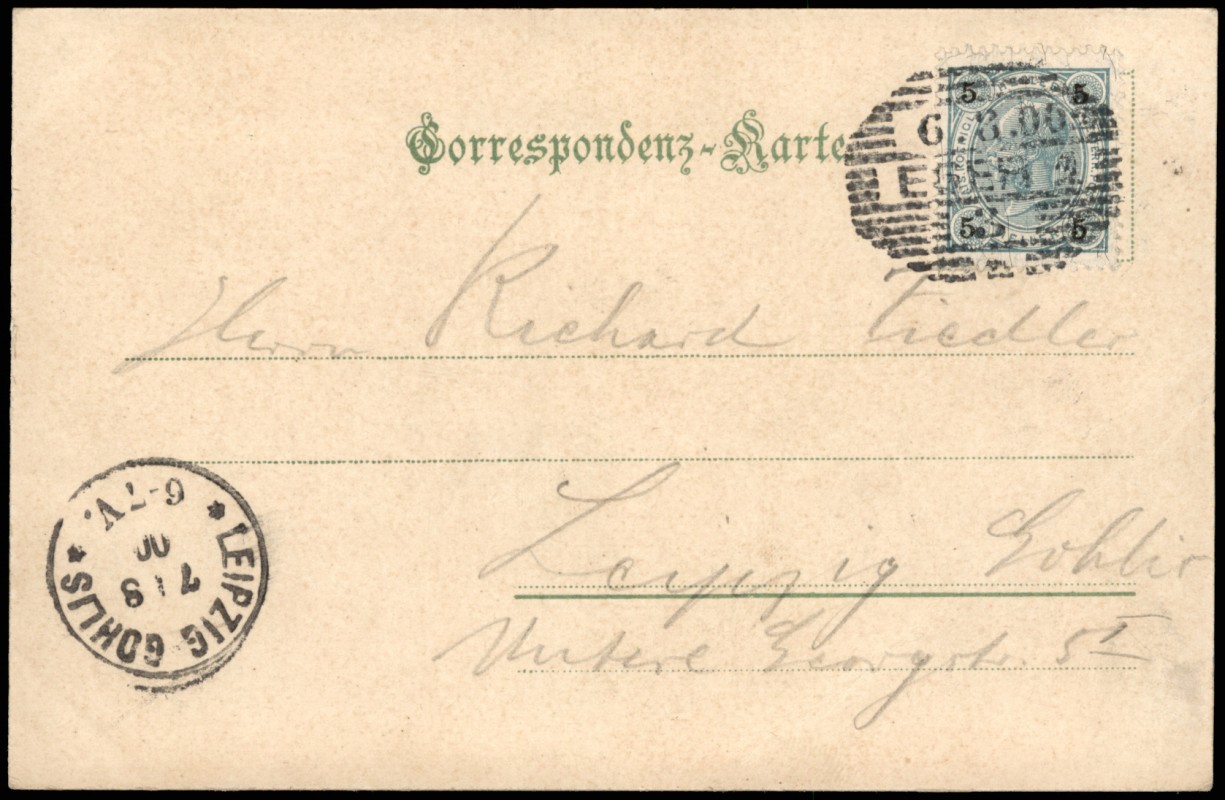 Correspondenz-Karte
5 5
5 5
6 8.00
Herrn Richard Fiedler
Leipzig Gohlis
Untere Georgstr. 5 I
* LEIPZIG GOHLIS *
7 8
00
6-7V.